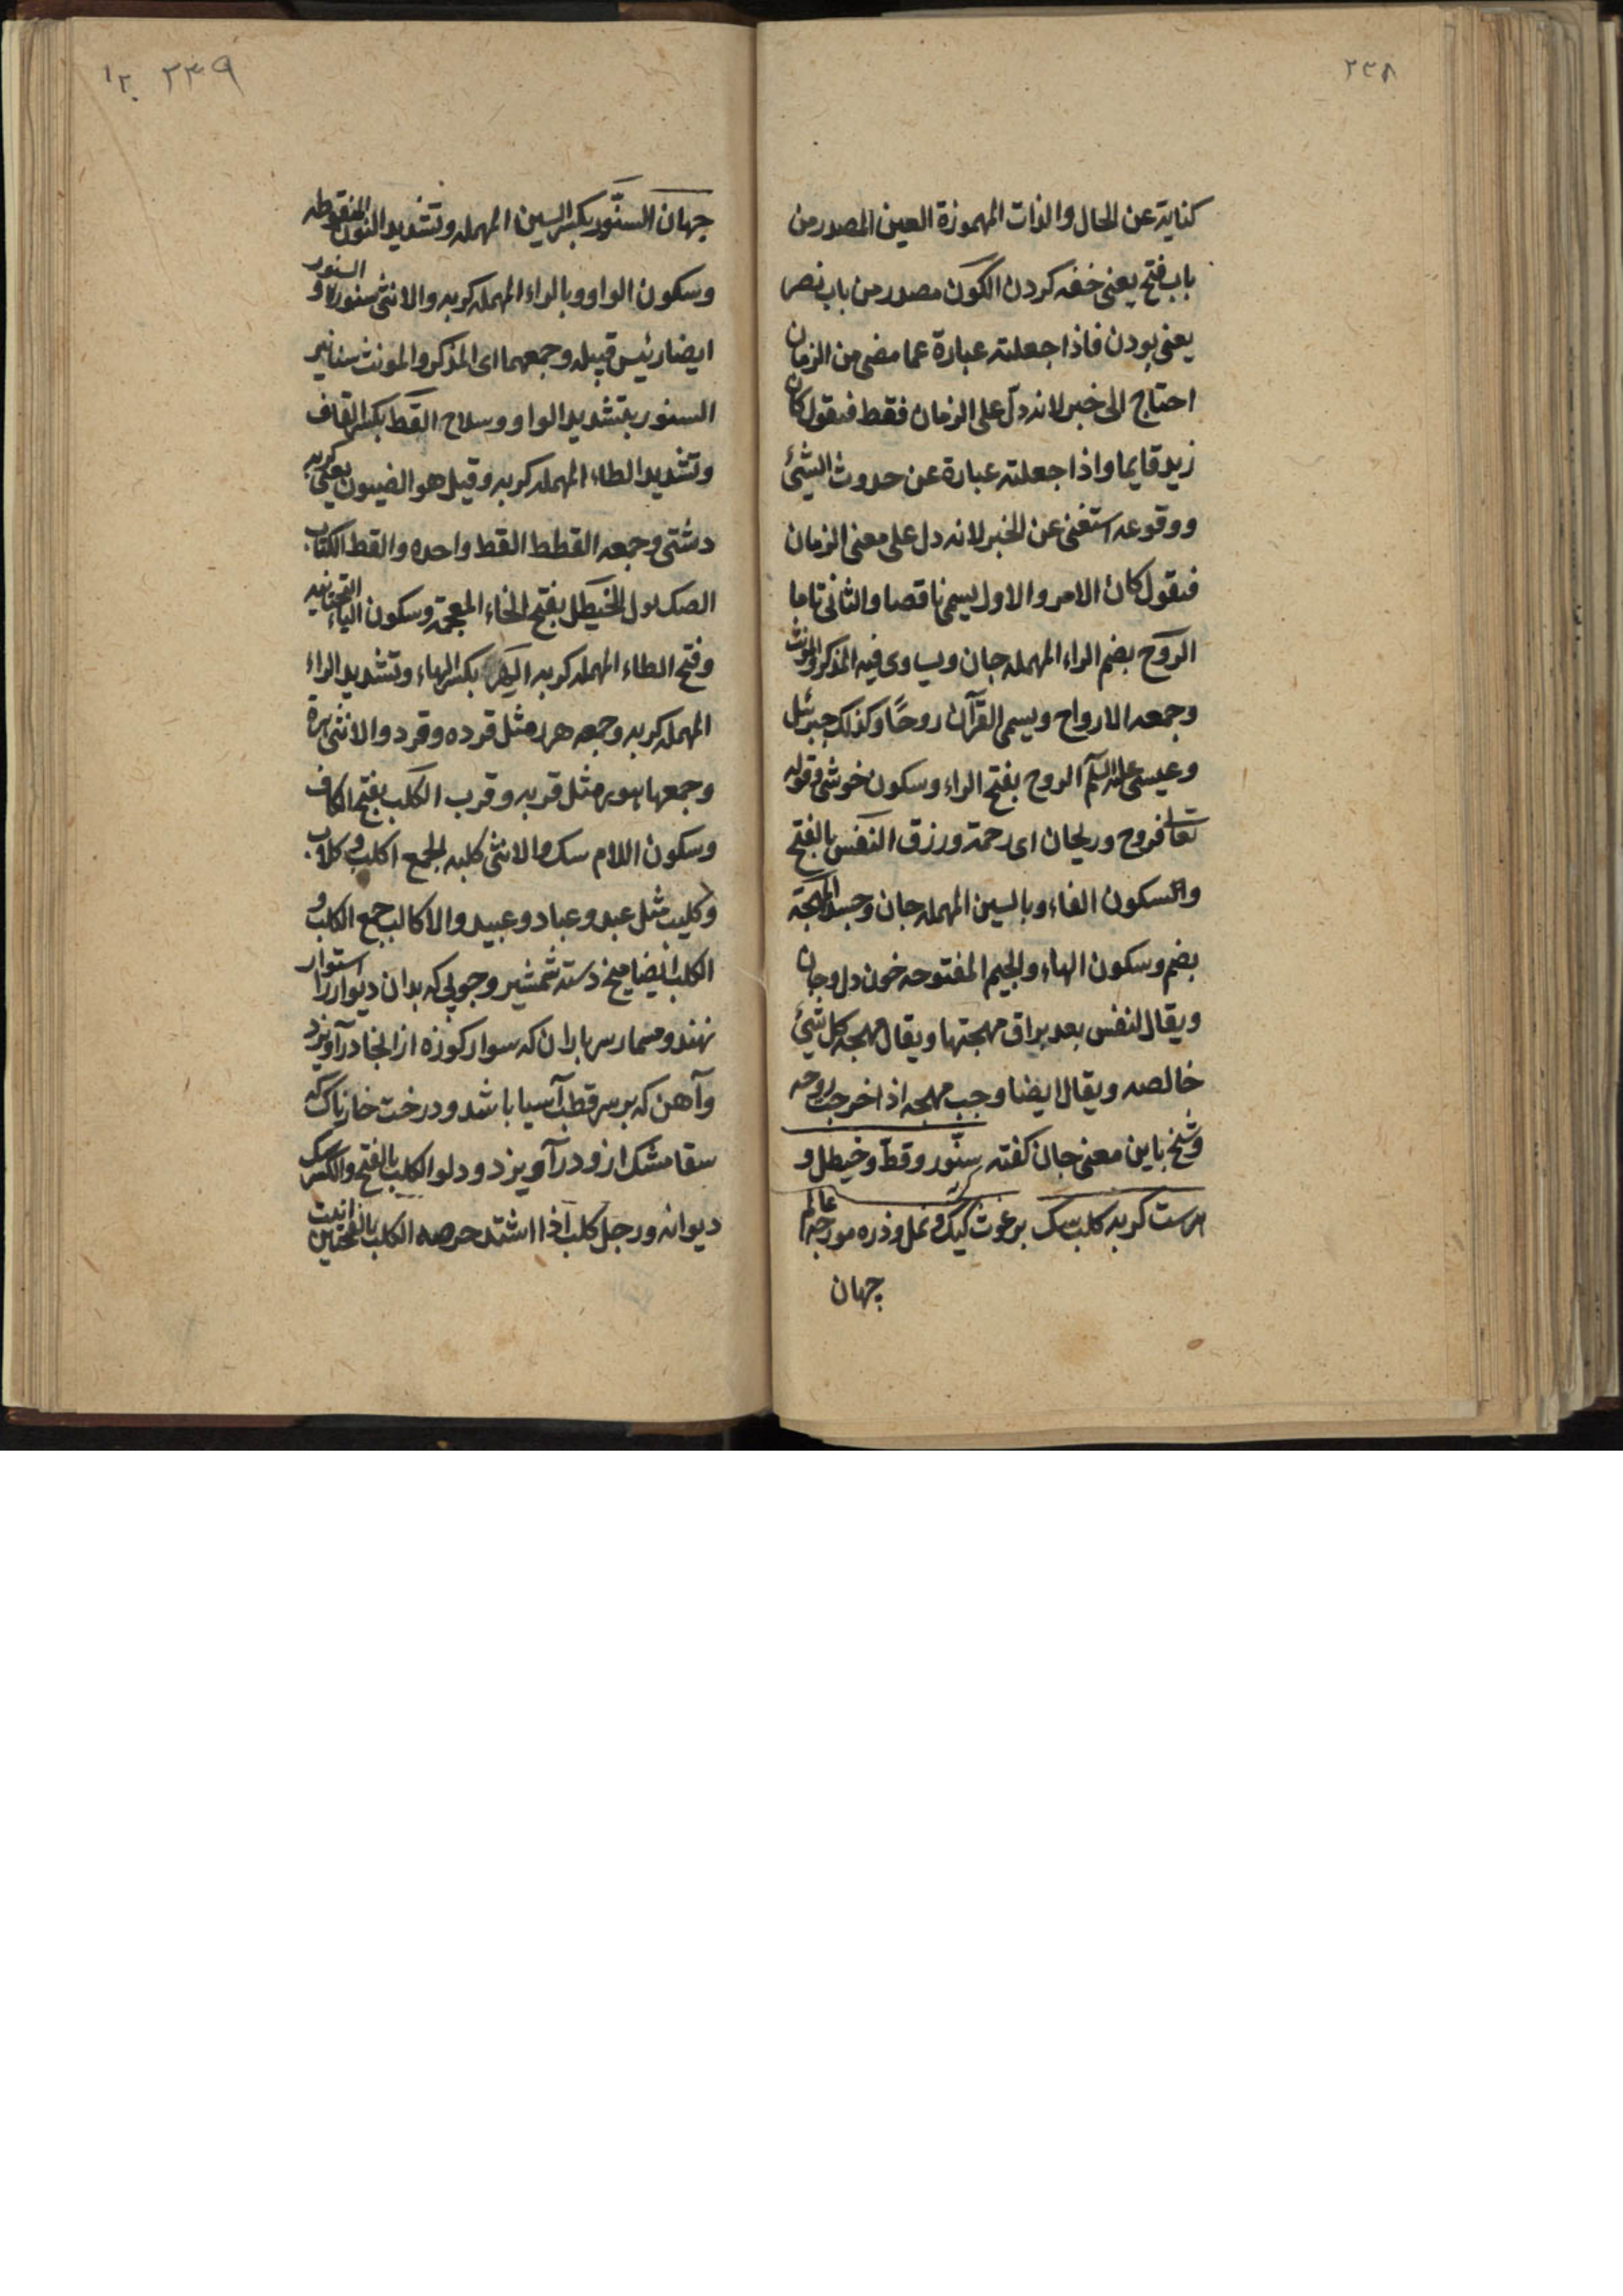 ٢٣٨
كناية عن الحال والذات المهموزة العين المصدر من
باب فتح يعنى خفه كردن الكون مصدر من باب نصر
يعنى بودن فاذا جعلته عبارة عما مضى من الزمان
احتاج الى خبر لانه دلّ على الزمان فقط فتقول كان
زيد قايما واذا جعلته عبارة عن حدوث الشئ
ووقوعه استغنى عن الخبر لانه دل على معنى الزمان
فتقول كان الامر والاول يسمى ناقصا والثانى تاما
الروح بضم الراء المهمله جان ويساوى فيه المذكر والمونث
وجمعه الارواح ويسمى القرآن روحًا وكذلك جبرئيل
وعيسى عليه السلم الروح بفتح الراء وسكون خوشى وقوله
تعا فروح وريحان اى رحمة ورزق النفس بالفتح
والسكون الفاء وبالسين المهمله جان وجسد المهجة
بضم وسكون الهاء والجيم المفتوحه خون دل وجان
ويقال لنفس بعد يراق مهجتها ويقال مهجه كل شئ
خالصه ويقال ايضا وجب مهجه اذا خرجت روحه
وشيخ باين معنى جان كفته سنّور وقط وخيطل و
هرست كربه كلب سك برغوث كيك و نمل وذره مورچه عالم
جهان
٢٣٩ ١٢٠
جهان السنّور بكسر السين المهمله وتشديد النون المنقوطه
وسكون الواو وبالراء المهمله كربه والانثى سنوره و السنور
ايضا رئيس قبيله وجمعهما اى المذكر والمونث سنانير
السنور بتشديد الواو وسلاح القط بكسر القاف
وتشديد الطاء المهمله كربه وقيل هو الضيون يعنى كربه
دشتى وجمعه القطط القط واحده والقط الكتاب
الصك الخيطل بفتح الخاء المعجمة وسكون الياء التحتانيه
وفتح الطاء المهمله كربه الهر بكسر الهاء وتشديد الراء
المهمله كربه وجمعه هرره مثل قرده وقرد والانثى هرة
وجمعها هرر مثل قربه وقرب الكلب بفتح الكاف
وسكون اللام سك والانثى كلبه الجمع اكلب و كلاب
وكليب مثل عبد وعباد وعبيد والاكالب جمع الكلب و
الكلب ايضا ميخ دسته شمشير وچوبى كه بدان ديوار را استوار
نهند ومسمار سر پاران كه سوار كوزه از انجا درآويزد
وآهن كه بر سر قطب آسيا باشد ودرخت خارناك كه
سقا مشك ازو درآويزد ودلو الكلب بالفتح والكسر سك
ديوانه ورجل كلب اذا اشتد حرصه الكلب بالفتحتين